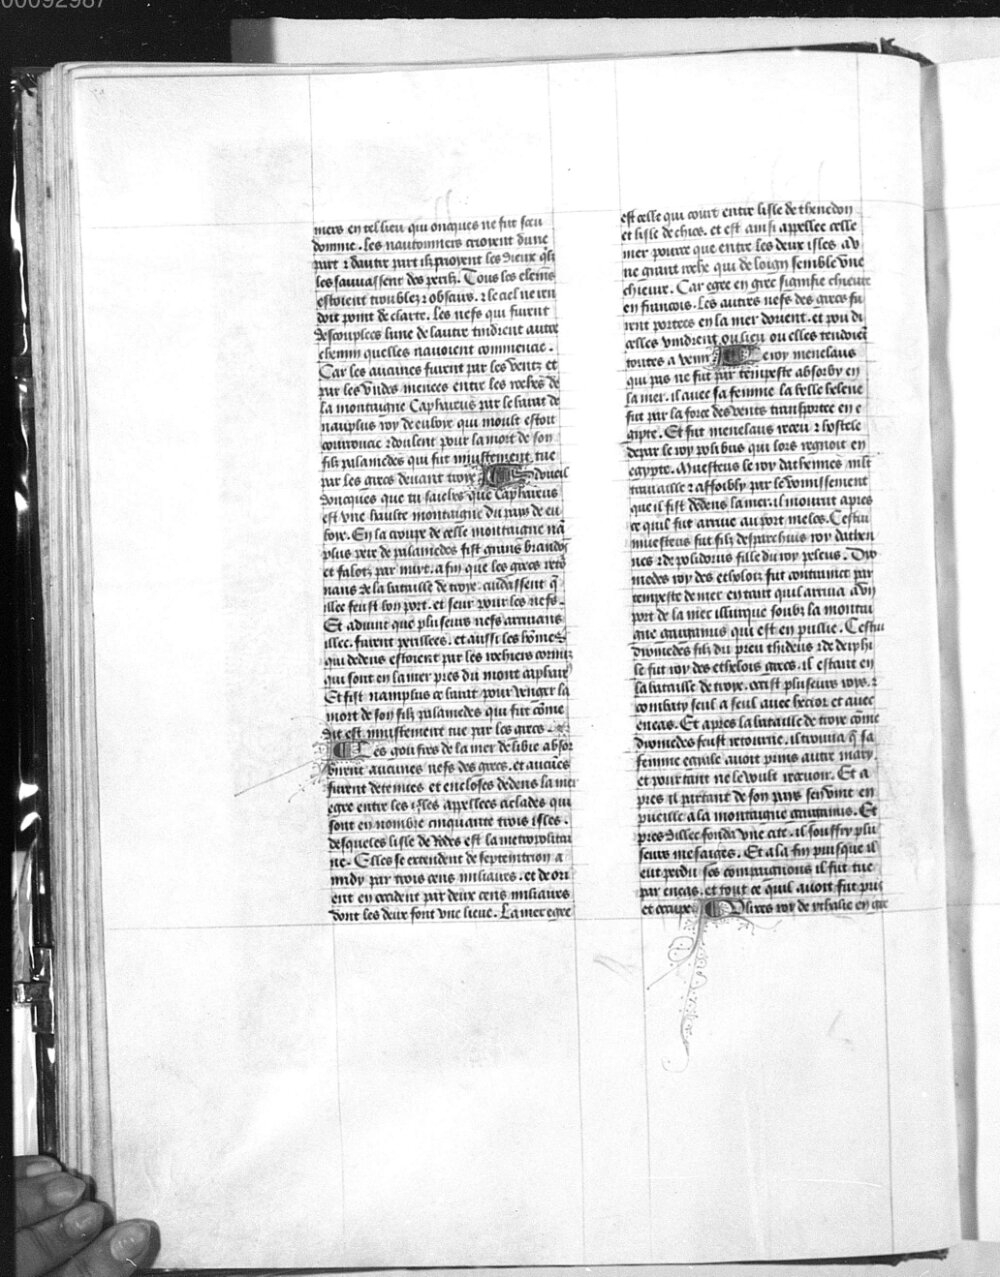 00092987
mers en tel lieu qui oncques ne fut sceu
domme. Les nautonniers crioyent dune
part ⁊ dautre part ilz prioyent les dieux qlz
les sauvassent des perilz. Tous les elemēs
estoient troublez ⁊ obscurs. ⁊ le ciel ne ren
doit point de clarte. Les nefs qui furent
descouplees lune de lautre tindrent autre
chemin quelles navoient commence.
Car les aucunes furent par les ventz et
par les vndes menees entre les roches de
la montaigne Caphareus par le barat de
nauplus roy de euboye qui moult estoit
courroucie ⁊ doulent pour la mort de son
filz palamedes qui fut iniustement tue
par les grecs devant troye Et dueil
doncques que tu saiches que Caphareus
est vne haulte montaigne du pays de eu
boye. En la croupe de celle montaigne nā
plus pere de palamedes fist grans brandōs
et falotz par nuyt. afin que les grecs retō
nans de la bataille de troye. cuidassent q̄
illec feust bon port. et seur pour les nefs.
Et advint que plusieurs nefs arrivans
illec. furent perillees. et aussi les hōmes
qui dedens estoient par les rochiers cornuz
qui sont en la mer pres du mont caphare⁹
Et fist namplus ce barat pour venger la
mort de son filz palamedes qui fut cōme
dit est. iniustement tue par les grecs.
Les goufres de la mer de libie absor
birent aucunes nefs des grecs. et aucūes
furent detenues et encloses dedens la mer
egee entre les isles appellees ciclades qui
sont en nombre cinquante trois isles.
desquelles lisle de rodes est la metropolitai
ne. Elles se extendent de septentrion a
midy par trois cens miliaires. et de ori
ent en occident par deux cens miliaires
dont les deux font vne lieue. La mer egee
est celle qui court entre lisle de thenedon
et lisle de chios. et est ainsi appellee celle
mer pource que entre les deux isles a v
ne grant roche qui de loing semble vne
chieure. Car egee en grec signifie chieure
en francois. Les autres nefs des grecs fu
rent portees en la mer dorient. et pou di
celles vindrent ou lieu ou elles tendoiēt
toutes a venir Le roy menelaus
qui pas ne fut par tempeste absorby en
la mer. il avec sa femme la belle helene
fut par la force des vents transportee en e
gipte. Et fut menelaus receu ⁊ hostele
depar le roy polibus qui lors regnoit en
egypte. Muesteus le roy dathennes mlt
travaille ⁊ affoibly par le vomissement
que il fist dedens la mer. il mourut apres
ce quil fut arrive au port melos. Cestui
muesteus fut filz desparchius roy dathen
nes ⁊ de polidorus fille du roy peleus. Dio
medes roy des etholoiz fut contrainct par
tempeste de mer en tant quil arriva a vn
port de la mer illirique soubz la montai
gne garganus qui est en puille. Cestui
diomedes filz du preu thideus ⁊ de deiphi
le fut roy des etholois grecs. il estant en
la bataille de troye. occist plusieurs roys. ⁊
combaty seul a seul avec hector et avec
eneas. Et apres la bataille de troye cōme
diomedes feust retourne. il trouva q̄ sa
femme egiale avoit prins autre mary.
et pourtant ne le voult recevoir. Et a
pres il partant de son pays sen vint en
pueille a la montaigne garganus. Et
pres dillec fonda vne cite. il souffry plu
seurs mesaiges. Et a la fin puisque il
eut perdu ses compaignons il fut tue
par eneas. et tout ce quil avoit fut pris
et occupe Vlixes roy de ythalie en gre